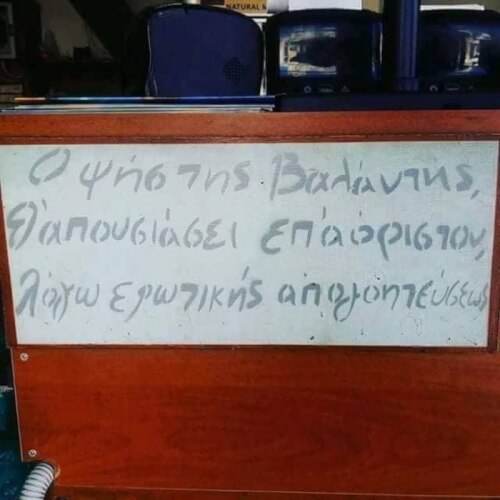 NATURAL &
Ο ψήστης Βαλάντης,
θ'απουσιάσει επ'αόριστον,
λόγω ερωτικής απογοητεύσεως